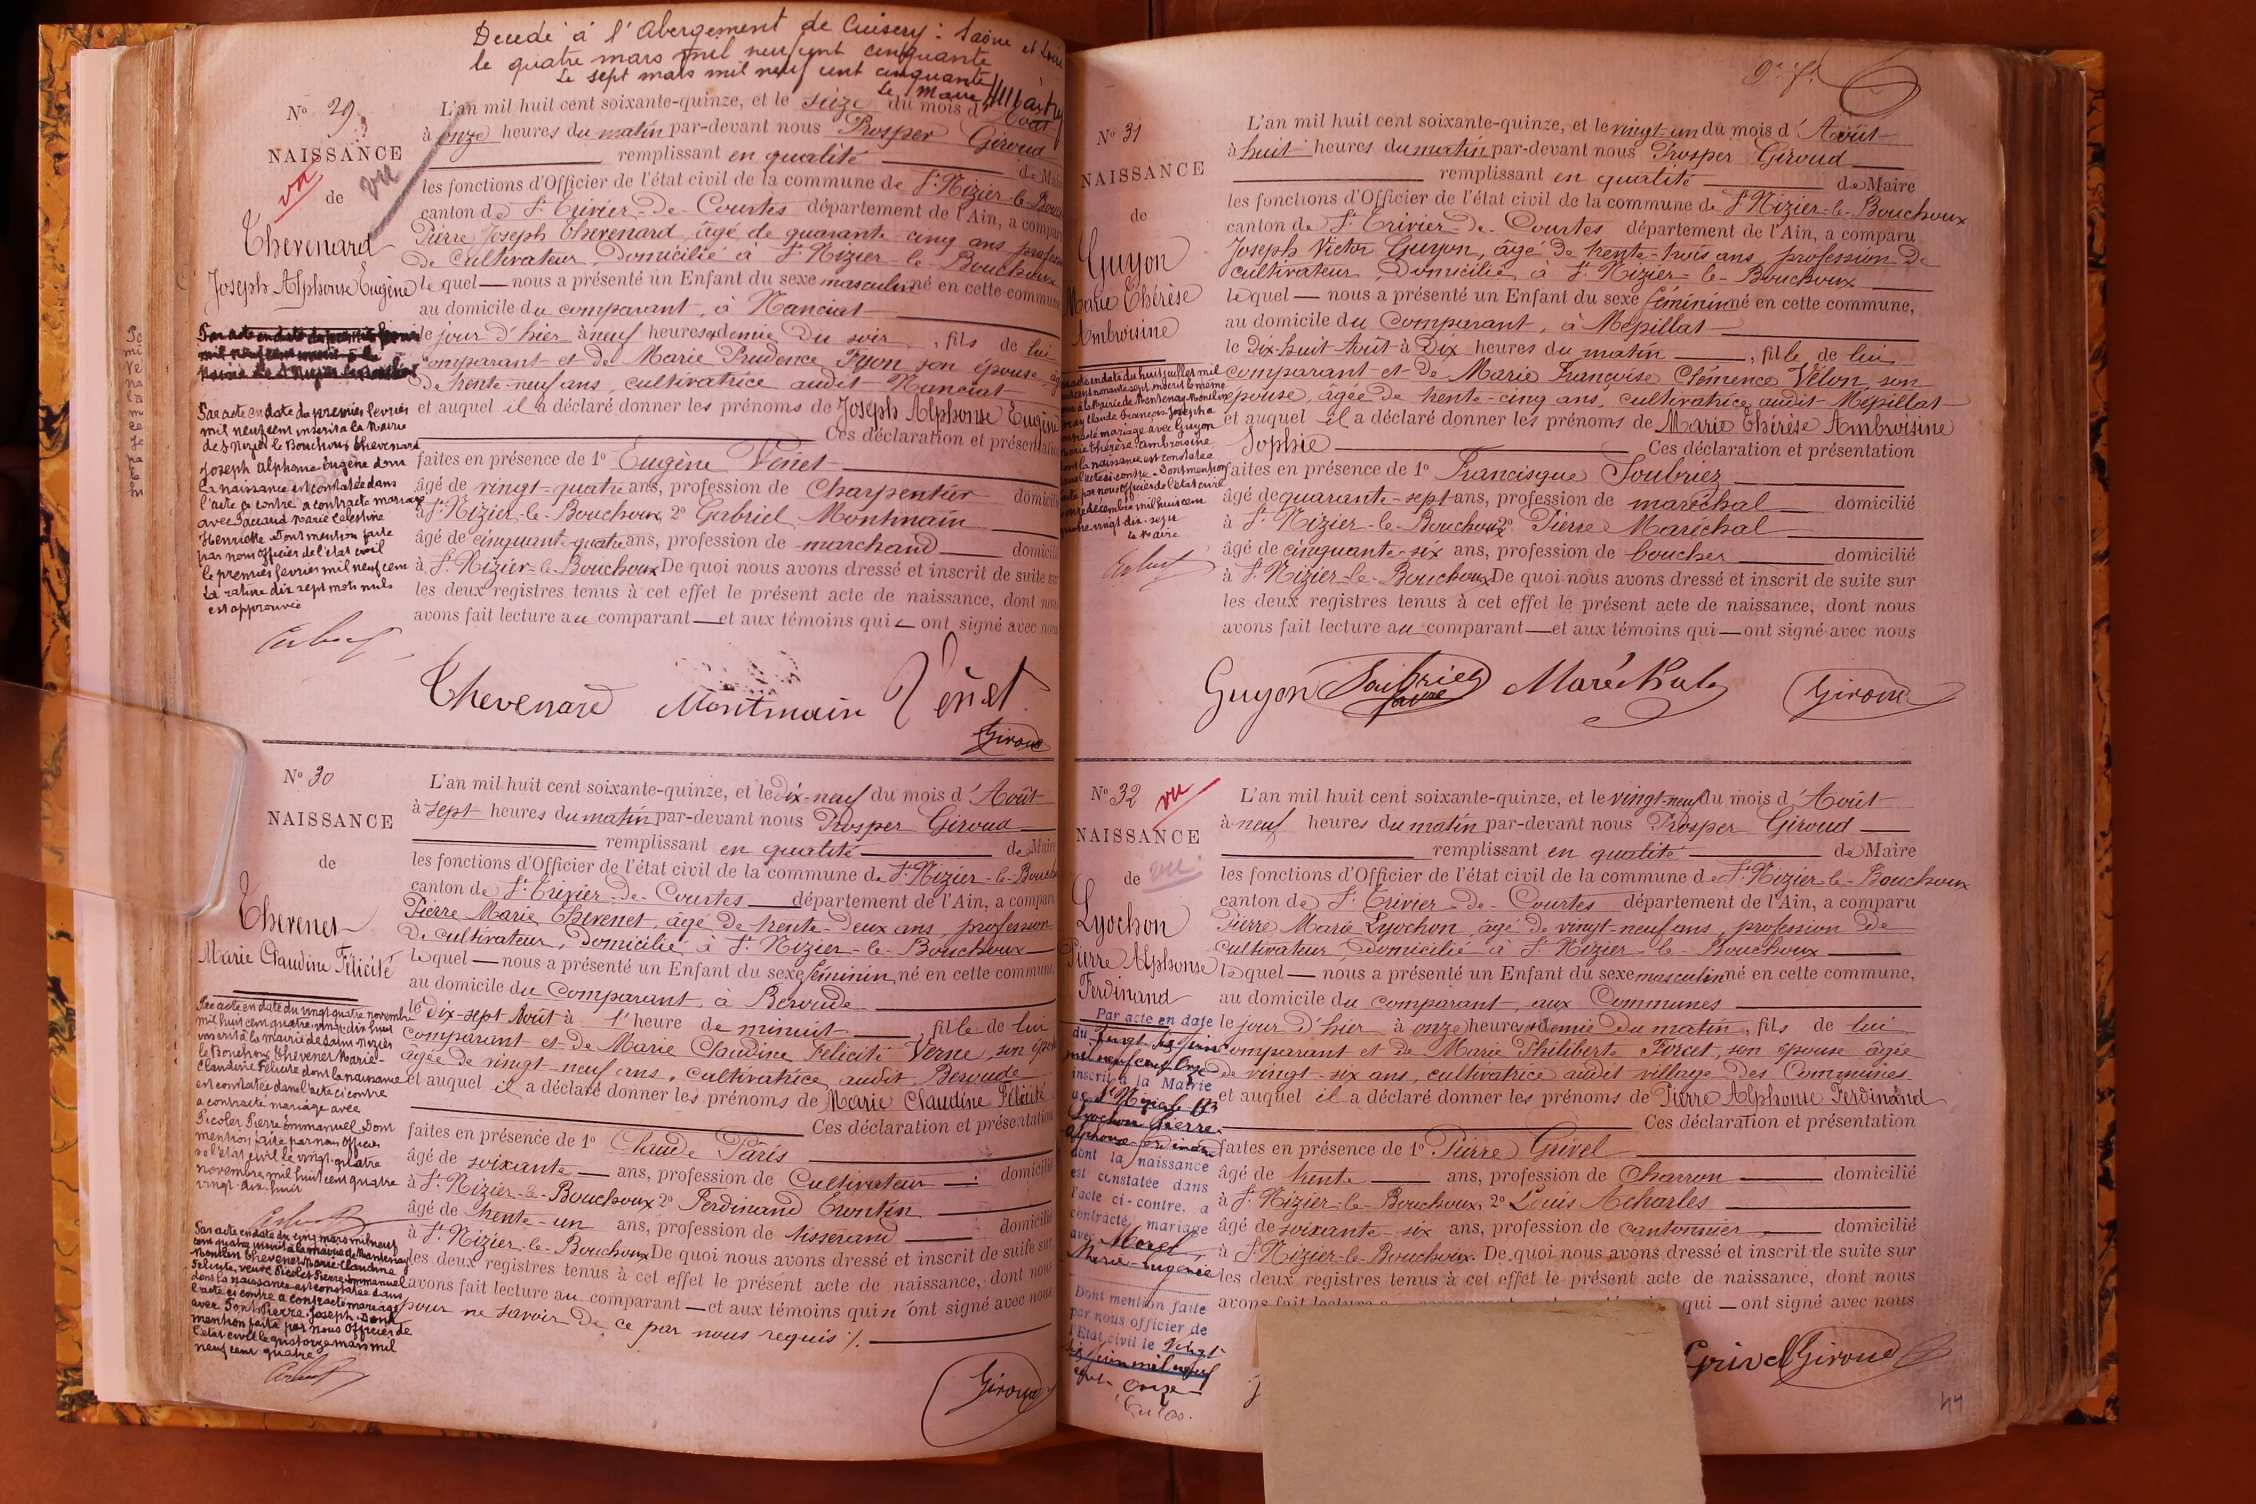 Décédé à l'Abergement de Cuisery : Saône et Loire
le quatre mars mil neuf cent cinquante
Le sept mars mil neuf cent cinquante
Le Maire
N° 29
NAISSANCE
vu
vu
de
Thevenard
Joseph Alphonse Eugène
Par acte en date du premier fevrier
mil neuf cent inscrit à la Mairie
de St Nizier le Bouchoux Thevenard
Joseph Alphonse Eugène dont
la naissance est constatée dans
l'acte ci contre a contracté mariage
avec Marie Celestine
Henriette Dont mention faite
par nous officier de l'état civil
le premier fevrier mil neuf cent
La rature dix sept mots nuls
est approuvée
L'an mil huit cent soixante-quinze, et le seize du mois d'Août
à onze heures du matin par-devant nous Prosper Giroud
remplissant en qualité de Maire
les fonctions d'Officier de l'état civil de la commune de St Nizier-le-Bouch
canton de St Trivier-de-Courtes département de l'Ain, a comparu
Pierre Joseph Thevenard, âgé de quarante-cinq ans, profession
de cultivateur, domicilié à St Nizier-le-Bouchoux
lequel nous a présenté un Enfant du sexe masculin né en cette commune
au domicile du comparant, à Nanciat
le jour d'hier à neuf heures et demie du soir, fils de lui
comparant et de Marie Prudence Pyon son épouse, âgée
de trente-neuf ans, cultivatrice audit Nanciat
et auquel il a déclaré donner les prénoms de Joseph Alphonse Eugène
Ces déclaration et présentation
faites en présence de 1° Eugène Vénet
âgé de vingt-quatre ans, profession de Charpentier domicilié
à St Nizier-le-Bouchoux, 2° Gabriel Montmain
âgé de cinquante-quatre ans, profession de marchand domicilié
à St Nizier-le-Bouchoux De quoi nous avons dressé et inscrit de suite sur
les deux registres tenus à cet effet le présent acte de naissance, dont nous
avons fait lecture au comparant et aux témoins qui ont signé avec nous
Thevenard Montmain Vénet
Giroud
N° 30
NAISSANCE
de
Thevenet
Marie Claudine Félicité
Par acte en date du vingt quatre novembre
mil huit cent quatre vingt dix huit
inscrit à la Mairie de Saint Nizier
le Bouchoux Thevenet Marie
Claudine Félicité dont la naissance
est constatée dans l'acte ci contre
a contracté mariage avec
Picolet Pierre Emmanuel Dont
mention faite par nous officier
de l'état civil le vingt quatre
novembre mil huit cent quatre
vingt dix huit
Par acte en date du cinq mars mil neuf
cent quatre inscrit à la mairie de Mantenay
Montlin Thevenet Marie Claudine
Félicité, veuve Picolet Pierre Emmanuel
dont la naissance est constatée dans
l'acte ci contre a contracté mariage
avec Pont Pierre Joseph. Dont
mention faite par nous Officier de
l'état civil le quatorze mars mil
neuf cent quatre
L'an mil huit cent soixante-quinze, et le Dix-neuf du mois d'Août
à sept heures du matin par-devant nous Prosper Giroud
remplissant en qualité de Maire
les fonctions d'Officier de l'état civil de la commune de St Nizier-le-Bouch
canton de St Trivier-de-Courtes département de l'Ain, a comparu
Pierre Marie Thevenet, âgé de trente-deux ans, profession
de cultivateur, domicilié à St Nizier-le-Bouchoux
lequel nous a présenté un Enfant du sexe féminin, né en cette commune,
au domicile du comparant, à Beroude
le dix-sept Août à l'heure de minuit, fille de lui
comparant et de Marie Claudine Félicité Verne, son épouse
âgée de vingt-neuf ans, cultivatrice audit Beroude
et auquel il a déclaré donner les prénoms de Marie Claudine Félicité
Ces déclaration et présentation
faites en présence de 1° Claude Pâris
âgé de soixante ans, profession de Cultivateur domicilié
à St Nizier-le-Bouchoux 2° Ferdinand Trontin
âgé de trente-un ans, profession de tisserand domicilié
à St Nizier-le-Bouchoux De quoi nous avons dressé et inscrit de suite sur
les deux registres tenus à cet effet le présent acte de naissance, dont nous
avons fait lecture au comparant et aux témoins qui n'ont signé avec nous
pour ne savoir de ce par nous requis ./.
Giroud
N° 31
NAISSANCE
de
Guyon
Marie Thérèse
Ambroisine
L'an mil huit cent soixante-quinze, et le vingt-un du mois d'Août
à huit heures du matin par-devant nous Prosper Giroud
remplissant en qualité de Maire
les fonctions d'Officier de l'état civil de la commune de St Nizier-le-Bouchoux
canton de St Trivier-de-Courtes département de l'Ain, a comparu
Joseph Victor Guyon, âgé de trente-trois ans, profession de
cultivateur, domicilié à St Nizier-le-Bouchoux
lequel nous a présenté un Enfant du sexe féminin né en cette commune,
au domicile du comparant, à Mépillat
le Dix-huit Août à Dix heures du matin, fille de lui
comparant et de Marie Françoise Clémence Velon, son
épouse, âgée de trente-cinq ans, cultivatrice audit Mépillat
et auquel il a déclaré donner les prénoms de Marie Thérèse Ambroisine
Sophie Ces déclaration et présentation
faites en présence de 1° Francisque Soubriez
âgé de quarante-sept ans, profession de maréchal domicilié
à St Nizier-le-Bouchoux 2° Pierre Maréchal
âgé de cinquante-six ans, profession de boucher domicilié
à St Nizier-le-Bouchoux De quoi nous avons dressé et inscrit de suite sur
les deux registres tenus à cet effet le présent acte de naissance, dont nous
avons fait lecture au comparant et aux témoins qui ont signé avec nous
Guyon Soubriez Maréchal Giroud
N° 32
vu
NAISSANCE
de vu
Lyochon
Pierre Alphonse
Ferdinand
Par acte en date
du vingt six juin
mil neuf cent onze
inscrit à la Mairie
de St Nizier le Bx
Lyochon Pierre
Alphonse Ferdinand
dont la naissance
est constatée dans
l'acte ci-contre, a
contracté mariage
avec Morel
Marie-Eugénie
Dont mention faite
par nous officier de
l'Etat civil le vingt
six juin mil neuf
cent onze
L'an mil huit cent soixante-quinze, et le vingt-neuf du mois d'Août
à neuf heures du matin par-devant nous Prosper Giroud
remplissant en qualité de Maire
les fonctions d'Officier de l'état civil de la commune de St Nizier-le-Bouchoux
canton de St Trivier-de-Courtes département de l'Ain, a comparu
Pierre Marie Lyochon, âgé de vingt-neuf ans, profession de
cultivateur, domicilié à St Nizier-le-Bouchoux
lequel nous a présenté un Enfant du sexe masculin né en cette commune,
au domicile du comparant, aux Communes
le jour d'hier à onze heures et demie du matin, fils de lui
comparant et de Marie Philiberte Forcet, son épouse âgée
de vingt-six ans, cultivatrice audit village des Communes
et auquel il a déclaré donner les prénoms de Pierre Alphonse Ferdinand
Ces déclaration et présentation
faites en présence de 1° Pierre Grivel
âgé de trente ans, profession de Charron domicilié
à St Nizier-le-Bouchoux, 2° Louis Acharles
âgé de soixante-six ans, profession de cantonnier domicilié
à St Nizier-le-Bouchoux. De quoi nous avons dressé et inscrit de suite sur
les deux registres tenus à cet effet le présent acte de naissance, dont nous
avons fait lecture qui ont signé avec nous
Grivel Giroud
44